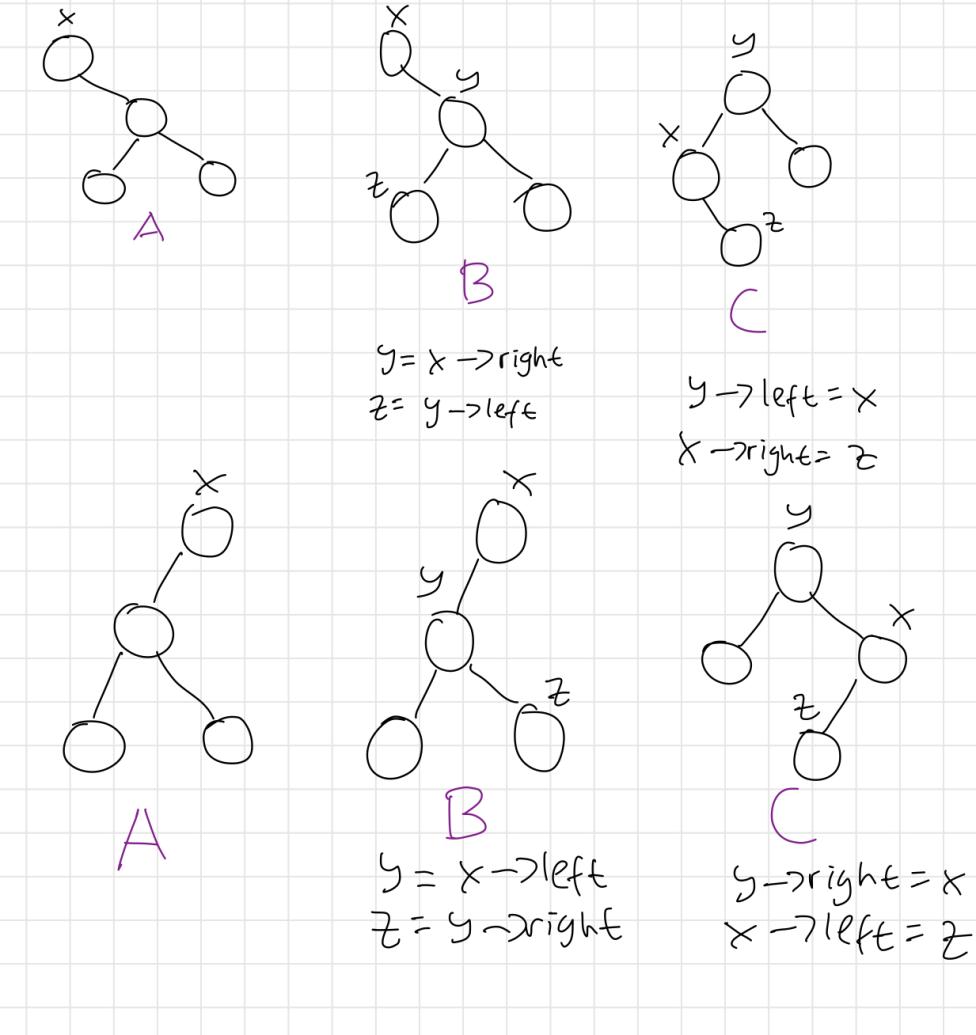 x
A
x
y
z
B
y= x ->right
z= y->left
y
x
z
C
y->left = x
x ->right= z
x
A
x
y
z
B
y = x->left
z = y->right
y
x
z
C
y->right = x
x ->left = z